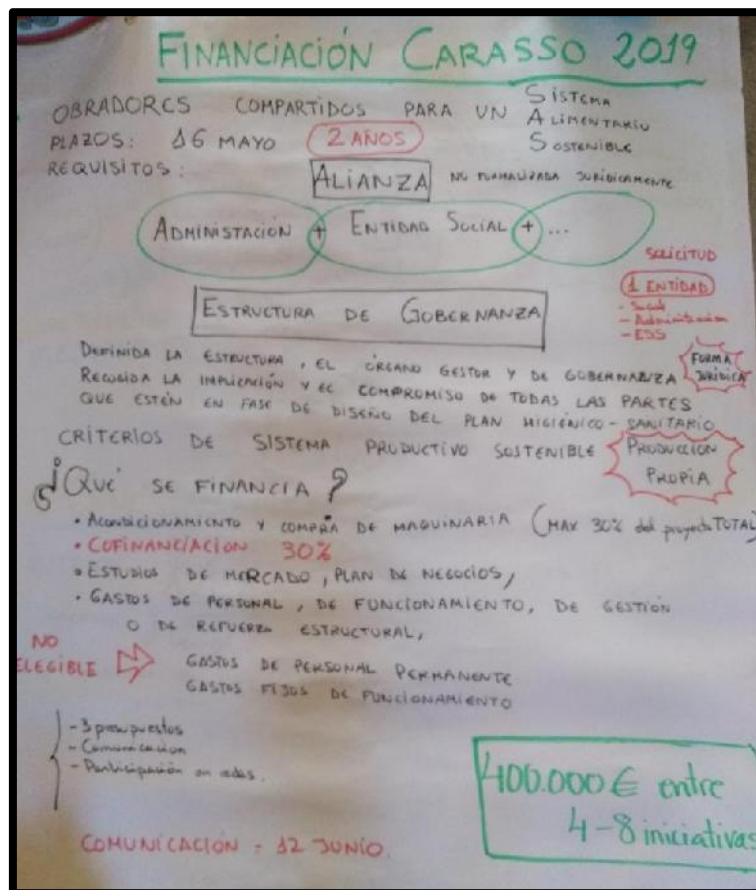 FINANCIACIÓN CARASSO 2019
OBRADORES COMPARTIDOS PARA UN SISTEMA
ALIMENTARIO
SOSTENIBLE
PLAZOS: 16 MAYO 2 AÑOS
REQUISITOS:
ALIANZA NO FORMALIZADA JURÍDICAMENTE
ADMINISTACIÓN + ENTIDAD SOCIAL + ...
SOLICITUD
1 ENTIDAD
- Social
- Administración
- ESS
ESTRUCTURA DE GOBERNANZA
DEFINIDA LA ESTRUCTURA, EL ÓRGANO GESTOR Y DE GOBERNANZA
FORMA JURÍDICA
RECOGIDA LA IMPLICACIÓN Y EL COMPROMISO DE TODAS LAS PARTES
QUE ESTÉN EN FASE DE DISEÑO DEL PLAN HIGIÉNICO-SANITARIO
CRITERIOS DE SISTEMA PRODUCTIVO SOSTENIBLE
PRODUCCIÓN
PROPIA
¿QUÉ SE FINANCIA?
• ACONDICIONAMIENTO Y COMPRA DE MAQUINARIA (MAX 30% del proyecto TOTAL)
• COFINANCIACION 30%
• ESTUDIOS DE MERCADO, PLAN DE NEGOCIOS,
• GASTOS DE PERSONAL, DE FUNCIONAMIENTO, DE GESTIÓN
O DE REFUERZO ESTRUCTURAL,
NO
ELEGIBLE
GASTOS DE PERSONAL PERMANENTE
GASTOS FIJOS DE FUNCIONAMIENTO
- 3 presupuestos
- Comunicación
- Participación en redes.
400.000 € entre
4-8 iniciativas
COMUNICACIÓN = 12 JUNIO.